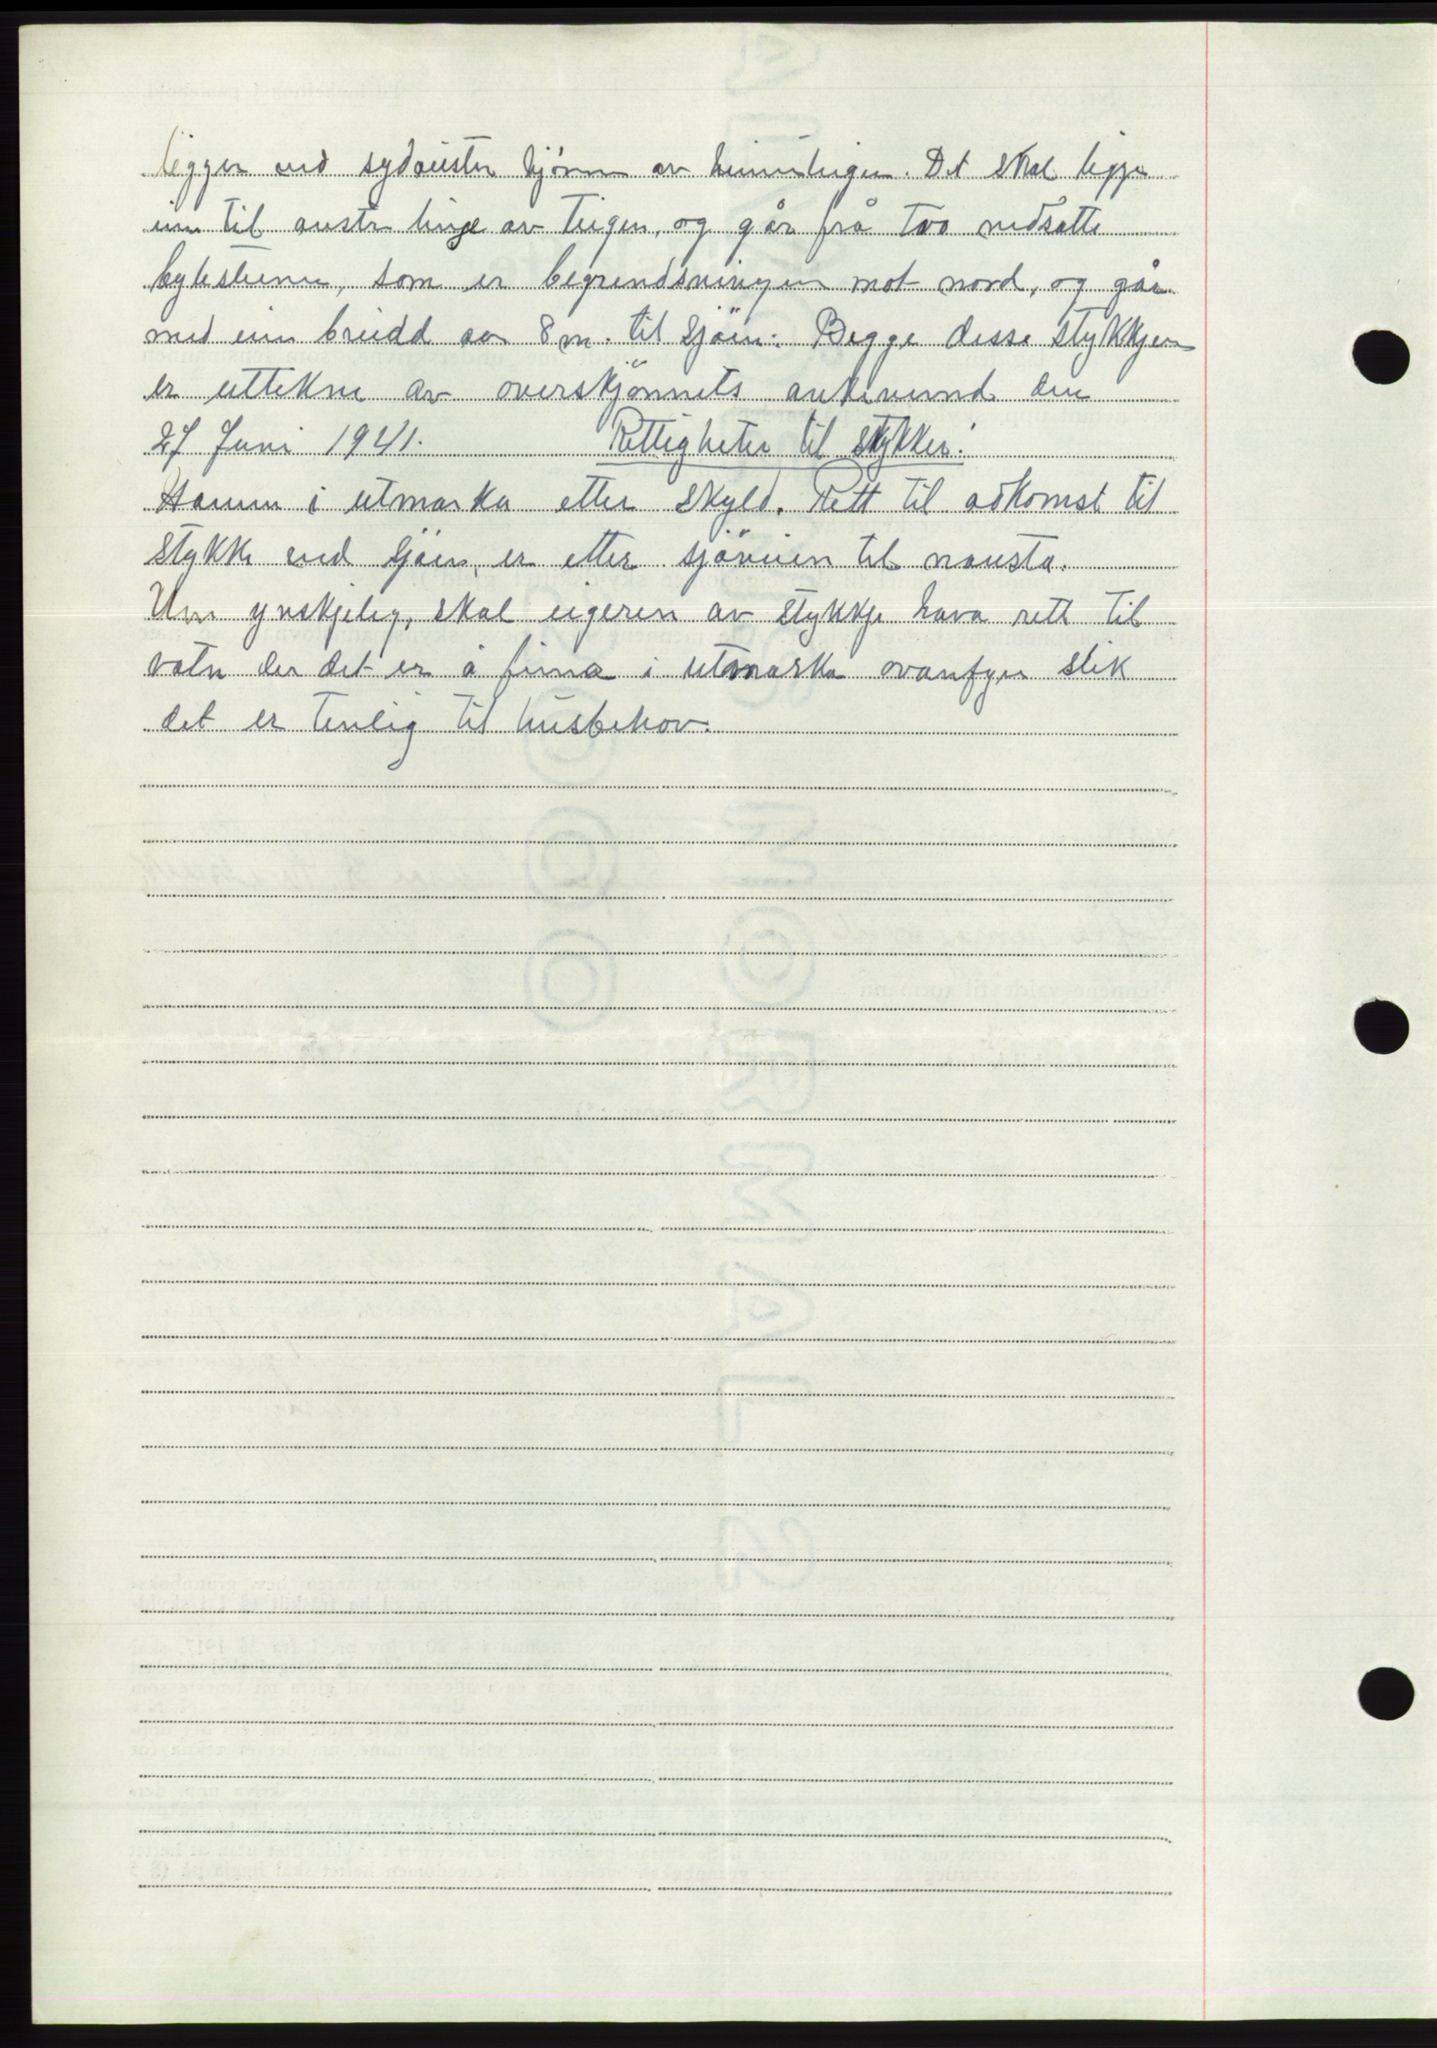 ligger ved sydauster hjörne av heimeteigen. Det skal ligge
inn til austre linje av teigen, og går frå tvo nedsatte
bytesteine, som er begrendsningen mot nord, og går
med ein breidd av 8 m. til sjöen. Begge disse stykkjer
er uttekne av overskjönnets ankenemnd den
27 Juni 1941. Rettigheter til stykker:
Hamn i utmarka etter skyld. Rett til adkomst til
stykke ved sjöen, er etter sjöveien til nausta.
Um ynskjeleg, skal eigeren av stykkje hava rett til
vatn der det er å finna i utmarka ovanfyr slik
det er tenleg til husbehov.